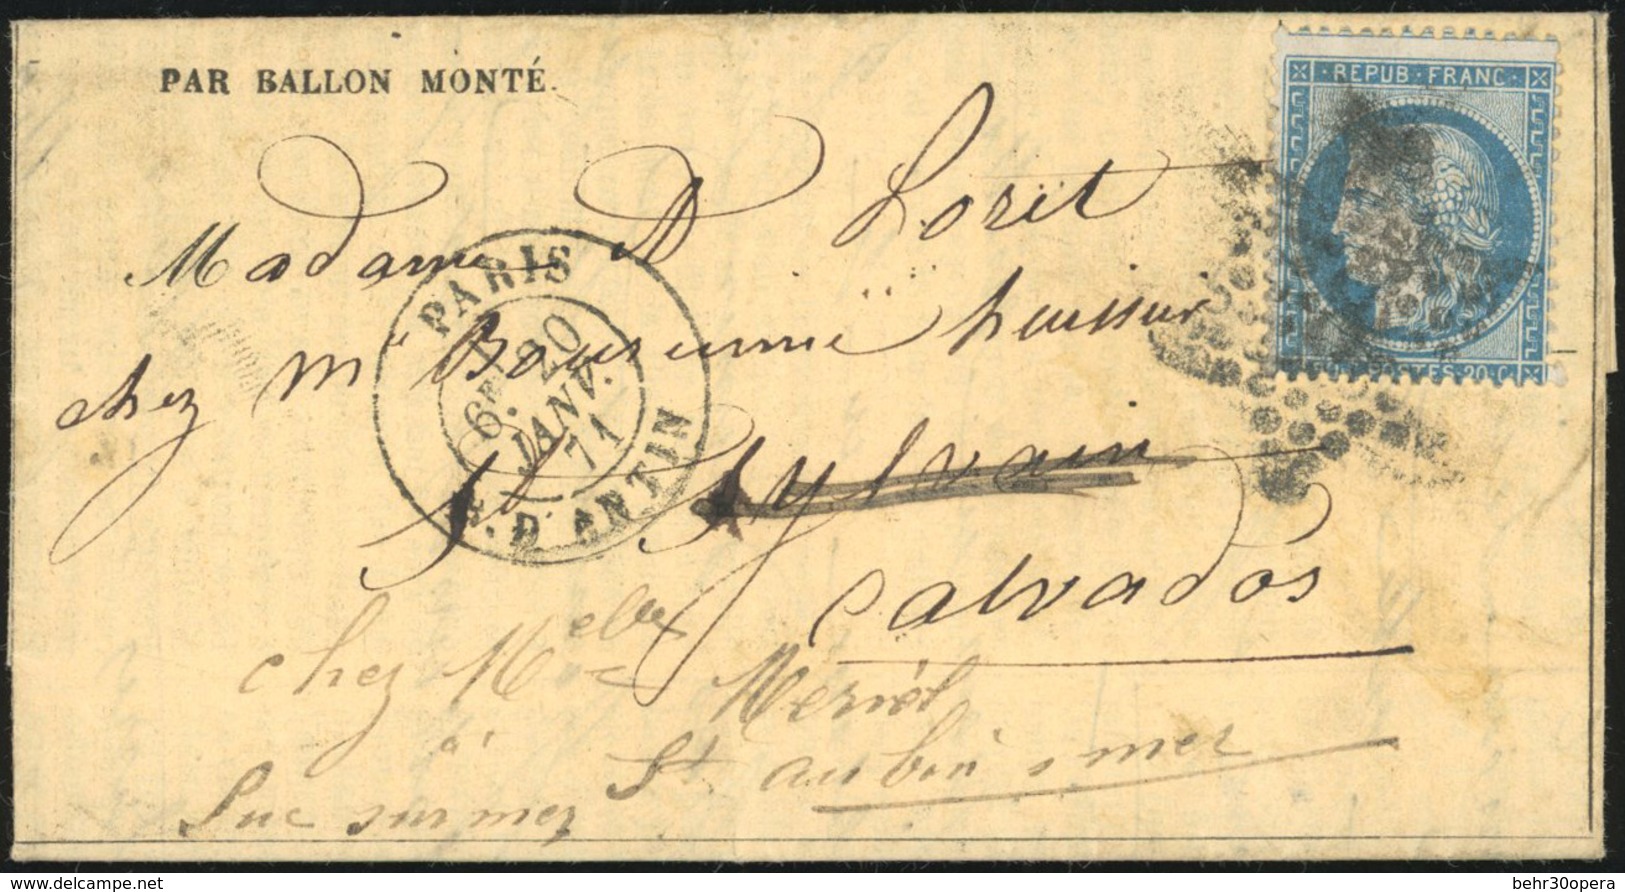 PAR BALLON MONTÉ.
REPUB. FRANC.
POSTES. 20. C.
Madame A Lorit
chez Mr huissier
St Sylvain
Calvados
PARIS
6E 20
JANV.
71
D'ANTIN
chez Mme Vve Meriel
à St aubin s mer
Luc sur mer
delcampe.net
behr30opera